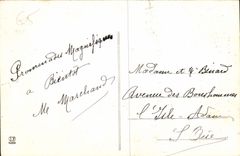 Promenades Magnifiques
à
Bientôt
M Marchand
Madame et Mr Bénard
Avenue des Bonshommes
L'Isle-Adam
S. Oise